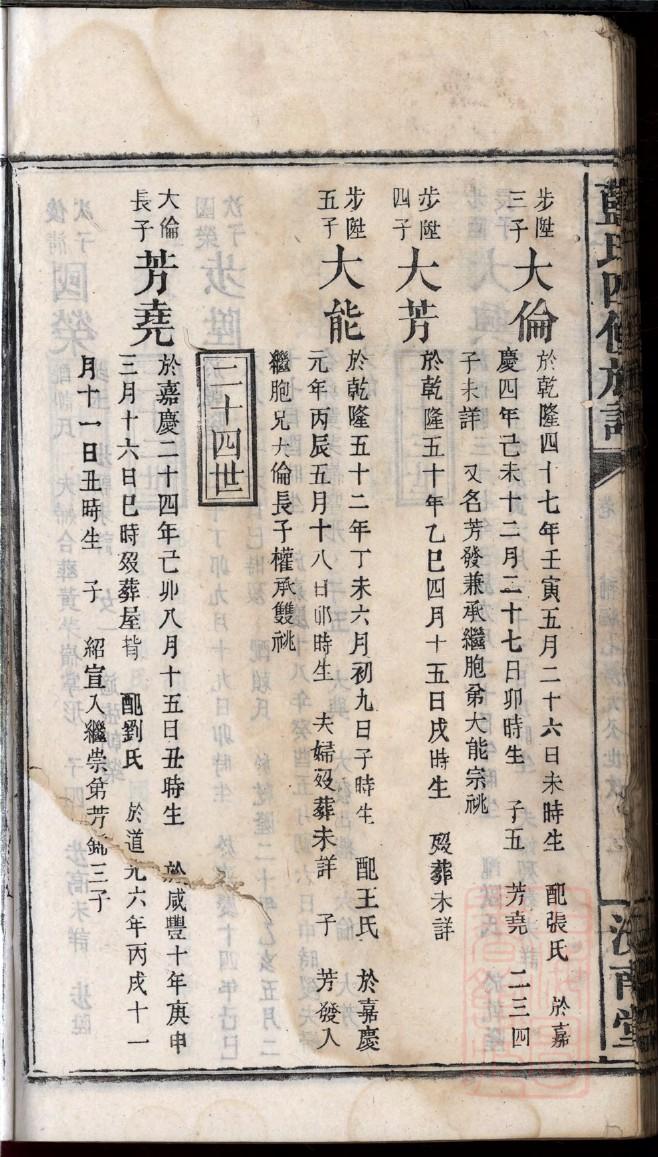 藍氏四修族譜
汝南堂
步陞三子 大倫 於乾隆四十七年壬寅五月二十六日未時生 配張氏 於嘉
慶四年己未十二月二十七日卯時生 子五 芳堯 二三四
子未詳 又名芳發兼承繼胞弟大能宗祧
步陞四子 大芳 於乾隆五十年乙巳四月十五日戌時生 歿葬未詳
步陞五子 大能 於乾隆五十二年丁未六月初九日子時生 配王氏 於嘉慶
元年丙辰五月十八日卯時生 夫婦歿葬未詳 子 芳發入
繼胞兄大倫長子權承雙祧
三十四世
大倫長子 芳堯 於嘉慶二十四年己卯八月十五日丑時生 於咸豐十年庚申
三月十六日巳時歿葬屋背 配劉氏 於道光六年丙戌十一
月十一日丑時生 子 紹宣入繼崇第芳 三子